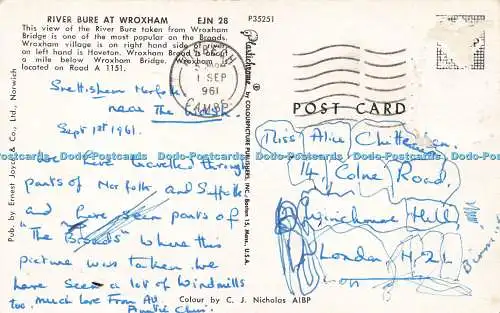 RIVER BURE AT WROXHAM EJN 28
This view of the River Bure taken from Wroxham
Bridge is one of the most popular on the Broads.
Wroxham village is on right hand side of river,
on left hand is Hoveton. Wroxham Broad is about
a mile below Wroxham Bridge. Wroxham is
located on Road A 1151.
P35251
1 SEP
961
CAMBS.
Snettisham Norfolk
near The Wash.
Sept 1st 1961.
We have travelled through
parts of Norfolk and Suffolk
and have seen parts of
"The Broads" where this
picture was taken. We
have seen a lot of windmills
too, much love from Au
Auntie
Pub. by Ernest Joyce & Co., Ltd., Norwich
Plastichrome ® by COLOURPICTURE PUBLISHERS, INC., Boston 15, Mass., U.S.A.
POST CARD
Miss Alice Chittenden,
14, Colne Road,
Winchmore Hill
London, N.21.
Colour by C. J. Nicholas AIBP
Dodo-Postcards